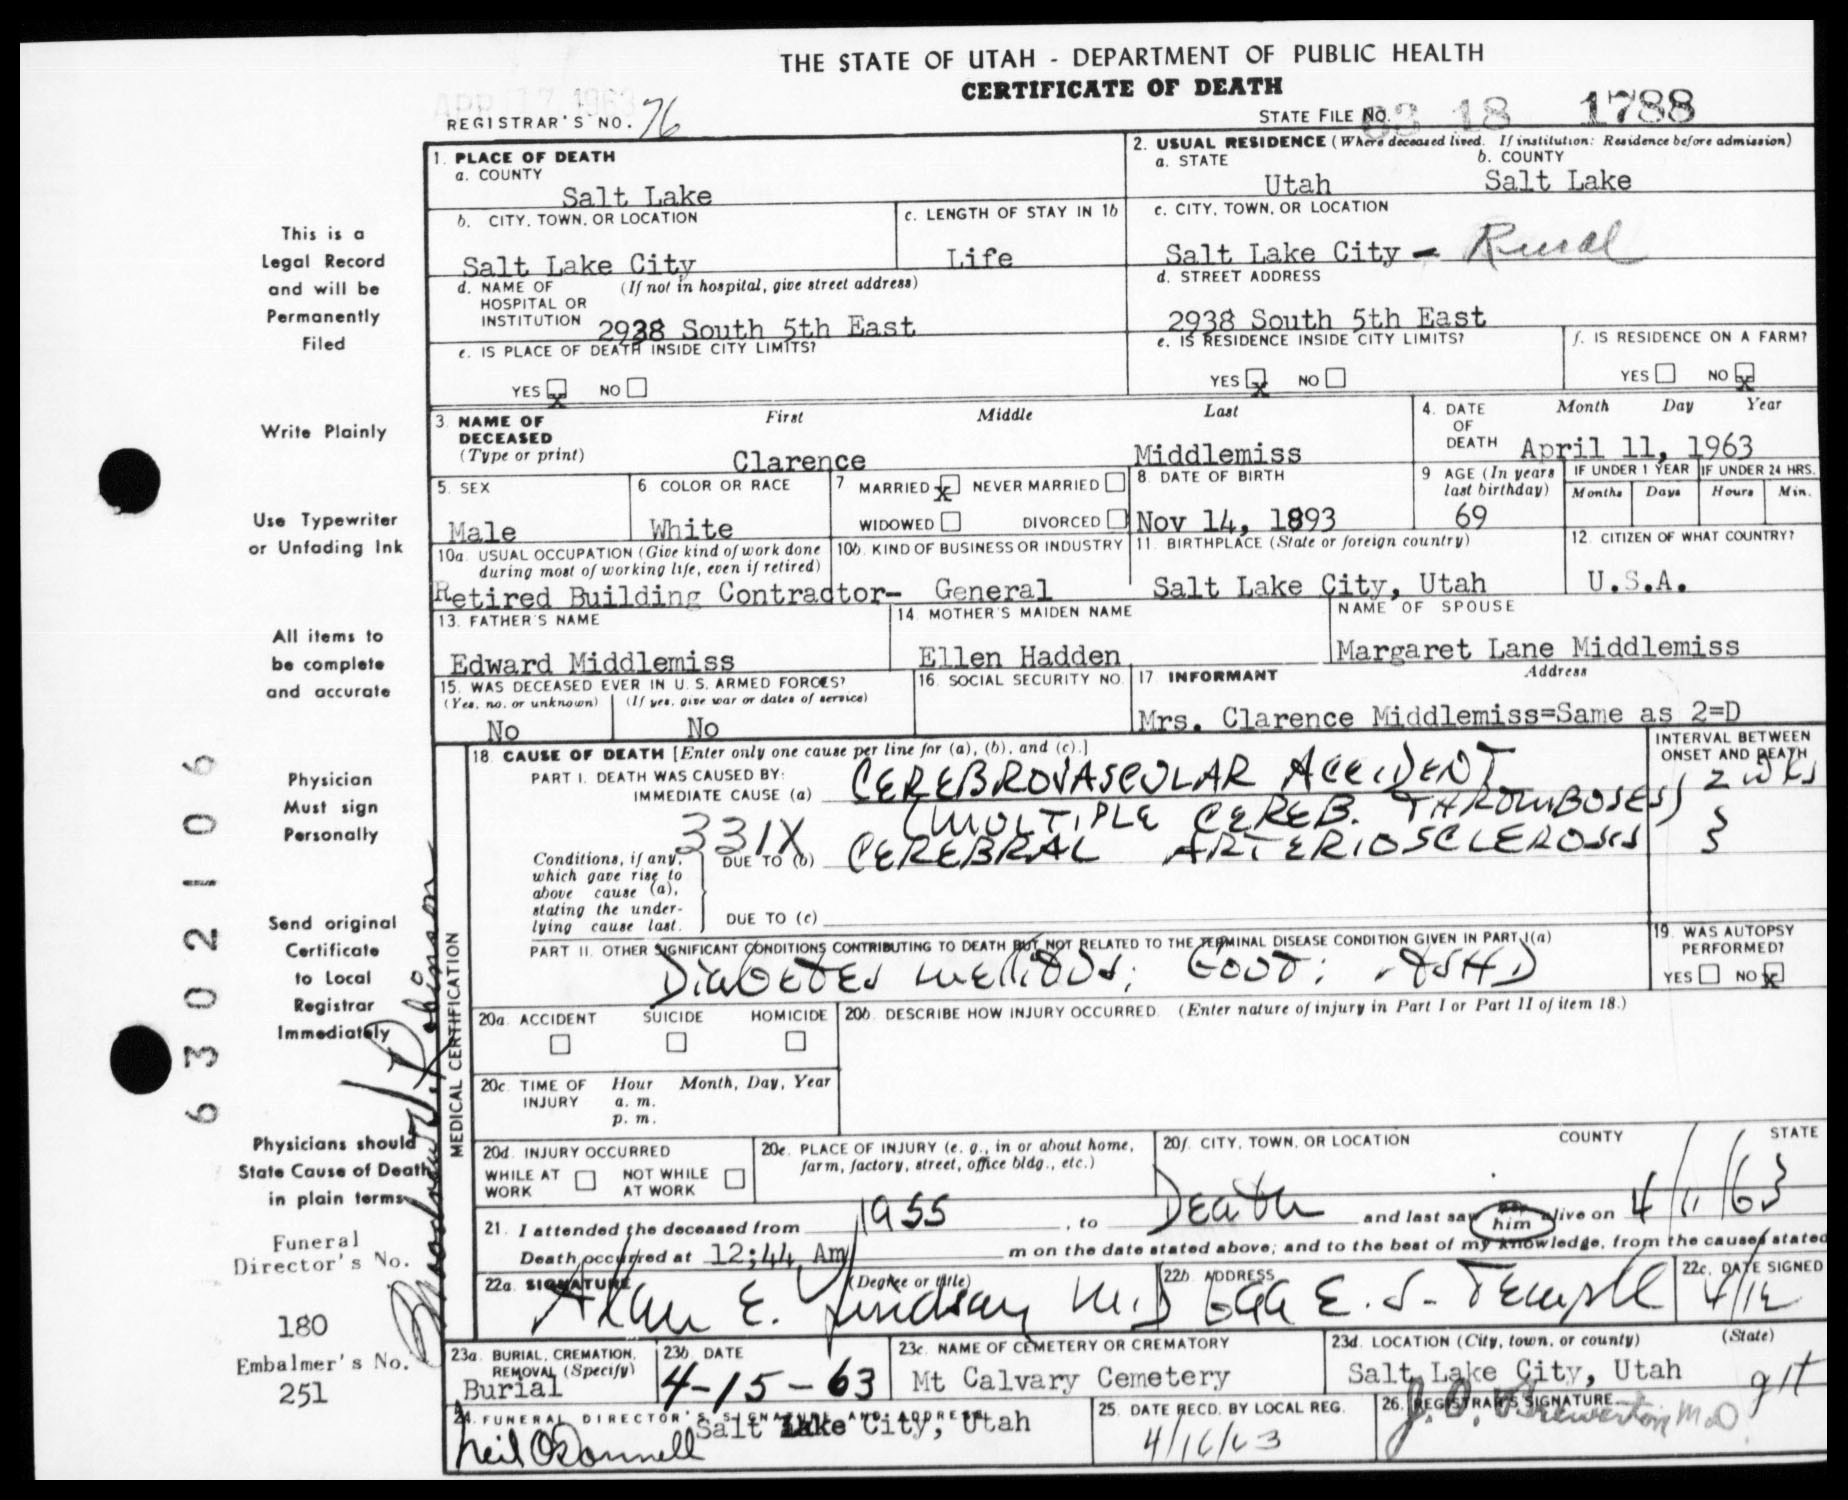 THE STATE OF UTAH - DEPARTMENT OF PUBLIC HEALTH
CERTIFICATE OF DEATH
APR 17 1963
REGISTRAR'S NO. 76
STATE FILE NO. 63 18 1788
This is a
Legal Record
and will be
Permanently
Filed
Write Plainly
Use Typewriter
or Unfading Ink
All items to
be complete
and accurate
Physician
Must sign
Personally
Send original
Certificate
to Local
Registrar
Immediately
Physicians should
State Cause of Death
in plain terms
Funeral
Director's No.
180
Embalmer's No.
251
6302106
Robinson
1. PLACE OF DEATH
a. COUNTY
Salt Lake
2. USUAL RESIDENCE (Where deceased lived. If institution: Residence before admission)
a. STATE
Utah
b. COUNTY
Salt Lake
b. CITY, TOWN, OR LOCATION
Salt Lake City
c. LENGTH OF STAY IN 1b
Life
c. CITY, TOWN, OR LOCATION
Salt Lake City - Rural
d. NAME OF (If not in hospital, give street address)
HOSPITAL OR
INSTITUTION 2938 South 5th East
d. STREET ADDRESS
2938 South 5th East
e. IS PLACE OF DEATH INSIDE CITY LIMITS?
YES x NO
e. IS RESIDENCE INSIDE CITY LIMITS?
YES x NO
f. IS RESIDENCE ON A FARM?
YES NO x
3. NAME OF
DECEASED
(Type or print)
First Middle Last
Clarence Middlemiss
4. DATE
OF
DEATH
Month Day Year
April 11, 1963
5. SEX
Male
6 COLOR OR RACE
White
7 MARRIED x NEVER MARRIED
WIDOWED DIVORCED
8. DATE OF BIRTH
Nov 14, 1893
9 AGE (In years
last birthday)
69
IF UNDER 1 YEAR
Months Days
IF UNDER 24 HRS.
Hours Min.
10a. USUAL OCCUPATION (Give kind of work done
during most of working life, even if retired)
Retired Building Contractor-
10b. KIND OF BUSINESS OR INDUSTRY
General
11. BIRTHPLACE (State or foreign country)
Salt Lake City, Utah
12. CITIZEN OF WHAT COUNTRY?
U.S.A.
13. FATHER'S NAME
Edward Middlemiss
14 MOTHER'S MAIDEN NAME
Ellen Hadden
NAME OF SPOUSE
Margaret Lane Middlemiss
15. WAS DECEASED EVER IN U. S. ARMED FORCES?
(Yes, no, or unknown) (If yes, give war or dates of service)
No No
16. SOCIAL SECURITY NO.
17 INFORMANT Address
Mrs. Clarence Middlemiss=Same as 2=D
MEDICAL CERTIFICATION
18. CAUSE OF DEATH [Enter only one cause per line for (a), (b), and (c).]
INTERVAL BETWEEN
ONSET AND DEATH
PART I. DEATH WAS CAUSED BY:
IMMEDIATE CAUSE (a) CEREBROVASCULAR ACCIDENT 2 wks
(MULTIPLE CEREB. THROMBOSES)
331X
Conditions, if any,
which gave rise to
above cause (a),
stating the under-
lying cause last.
DUE TO (b) CEREBRAL ARTERIOSCLEROSIS
DUE TO (c)
PART II. OTHER SIGNIFICANT CONDITIONS CONTRIBUTING TO DEATH BUT NOT RELATED TO THE TERMINAL DISEASE CONDITION GIVEN IN PART I(a)
Diabetes mellitus; Gout; ASHD
19. WAS AUTOPSY
PERFORMED?
YES NO x
20a. ACCIDENT SUICIDE HOMICIDE
20b. DESCRIBE HOW INJURY OCCURRED. (Enter nature of injury in Part I or Part II of item 18.)
20c. TIME OF Hour Month, Day, Year
INJURY a. m.
p. m.
20d. INJURY OCCURRED
WHILE AT NOT WHILE
WORK AT WORK
20e. PLACE OF INJURY (e. g., in or about home,
farm, factory, street, office bldg., etc.)
20f. CITY, TOWN, OR LOCATION COUNTY STATE
21. I attended the deceased from 1955, to Death and last saw him alive on 4/11/63
Death occurred at 12;44 Am m on the date stated above; and to the best of my knowledge, from the causes stated
22a. SIGNATURE (Degree or title)
Alan E. Lindsay M.D
22b. ADDRESS
E. S. Temple
22c. DATE SIGNED
4/12
23a. BURIAL, CREMATION,
REMOVAL (Specify)
Burial
23b. DATE
4-15-63
23c. NAME OF CEMETERY OR CREMATORY
Mt Calvary Cemetery
23d. LOCATION (City, town, or county) (State)
Salt Lake City, Utah
24. FUNERAL DIRECTOR'S SIGNATURE AND ADDRESS
Salt Lake City, Utah
Neil O'Donnell
25. DATE RECD. BY LOCAL REG.
4/16/63
26. REGISTRAR'S SIGNATURE
J. O. Brewerton M.D.